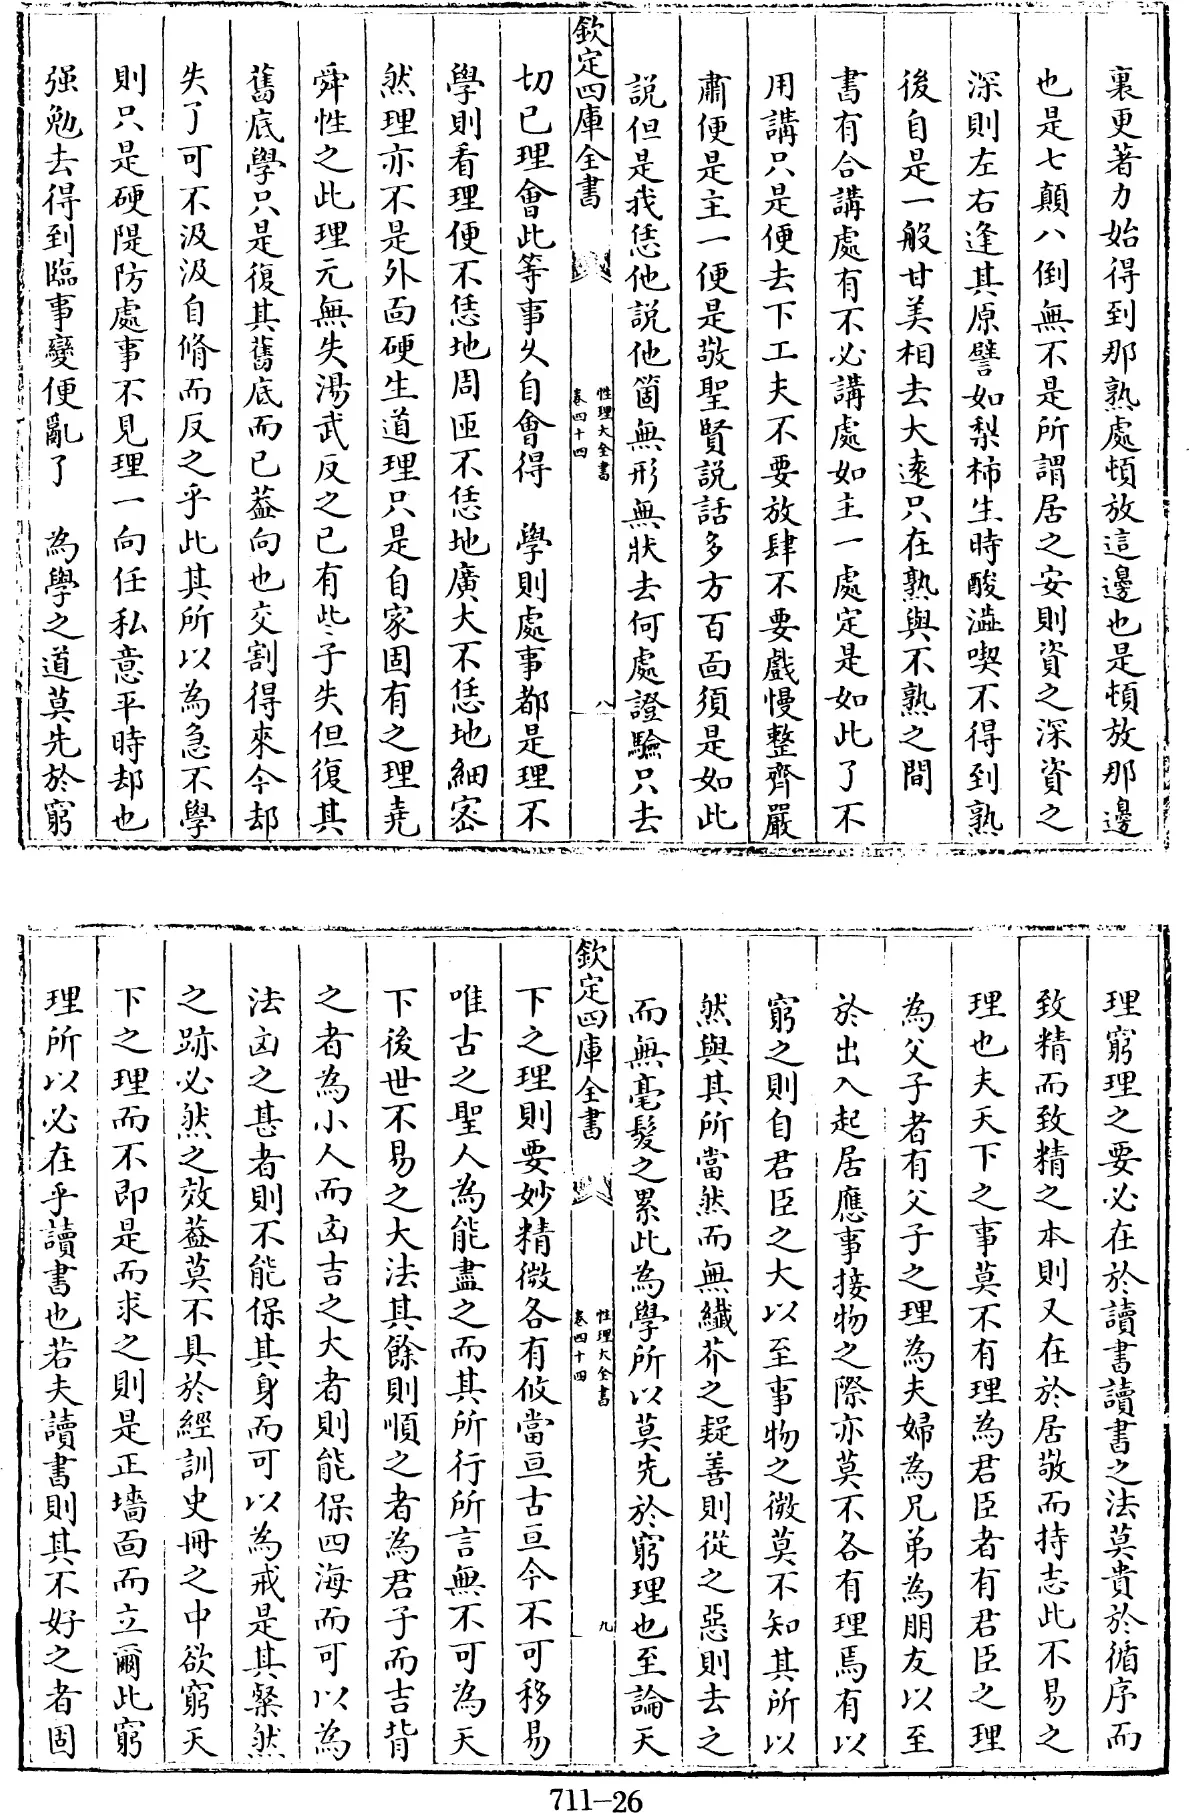 裏更著力始得到那熟處頓放這邊也是頓放那邊
也是七顛八倒無不是所謂居之安則資之深資之
深則左右逢其原譬如梨柿生時酸澁喫不得到熟
後自是一般甘美相去大遠只在熟與不熟之間
書有合講處有不必講處如主一處定是如此了不
用講只是便去下工夫不要放肆不要戲慢整齊嚴
肅便是主一便是敬聖賢說話多方百面須是如此
說但是我恁他說他箇無形無狀去何處證驗只去
欽定四庫全書
性理大全書
卷四十四
八
切已理會此等事久自會得 學則處事都是理不
學則看理便不恁地周匝不恁地廣大不恁地細密
然理亦不是外面硬生道理只是自家固有之理堯
舜性之此理元無失湯武反之已有些子失但復其
舊底學只是復其舊底而已蓋向也交割得來今却
失了可不汲汲自脩而反之乎此其所以為急不學
則只是硬隄防處事不見理一向任私意平時却也
强勉去得到臨事變便亂了 為學之道莫先於窮
理窮理之要必在於讀書讀書之法莫貴於循序而
致精而致精之本則又在於居敬而持志此不易之
理也夫天下之事莫不有理為君臣者有君臣之理
為父子者有父子之理為夫婦為兄弟為朋友以至
於出入起居應事接物之際亦莫不各有理焉有以
窮之則自君臣之大以至事物之微莫不知其所以
然與其所當然而無纖芥之疑善則從之惡則去之
而無毫髮之累此為學所以莫先於窮理也至論天
欽定四庫全書
性理大全書
卷四十四
九
下之理則要妙精微各有攸當亘古亘今不可移易
唯古之聖人為能盡之而其所行所言無不可為天
下後世不易之大法其餘則順之者為君子而吉背
之者為小人而凶吉之大者則能保四海而可以為
法凶之甚者則不能保其身而可以為戒是其粲然
之跡必然之效蓋莫不具於經訓史冊之中欲窮天
下之理而不即是而求之則是正墻面而立爾此窮
理所以必在乎讀書也若夫讀書則其不好之者固
711-26